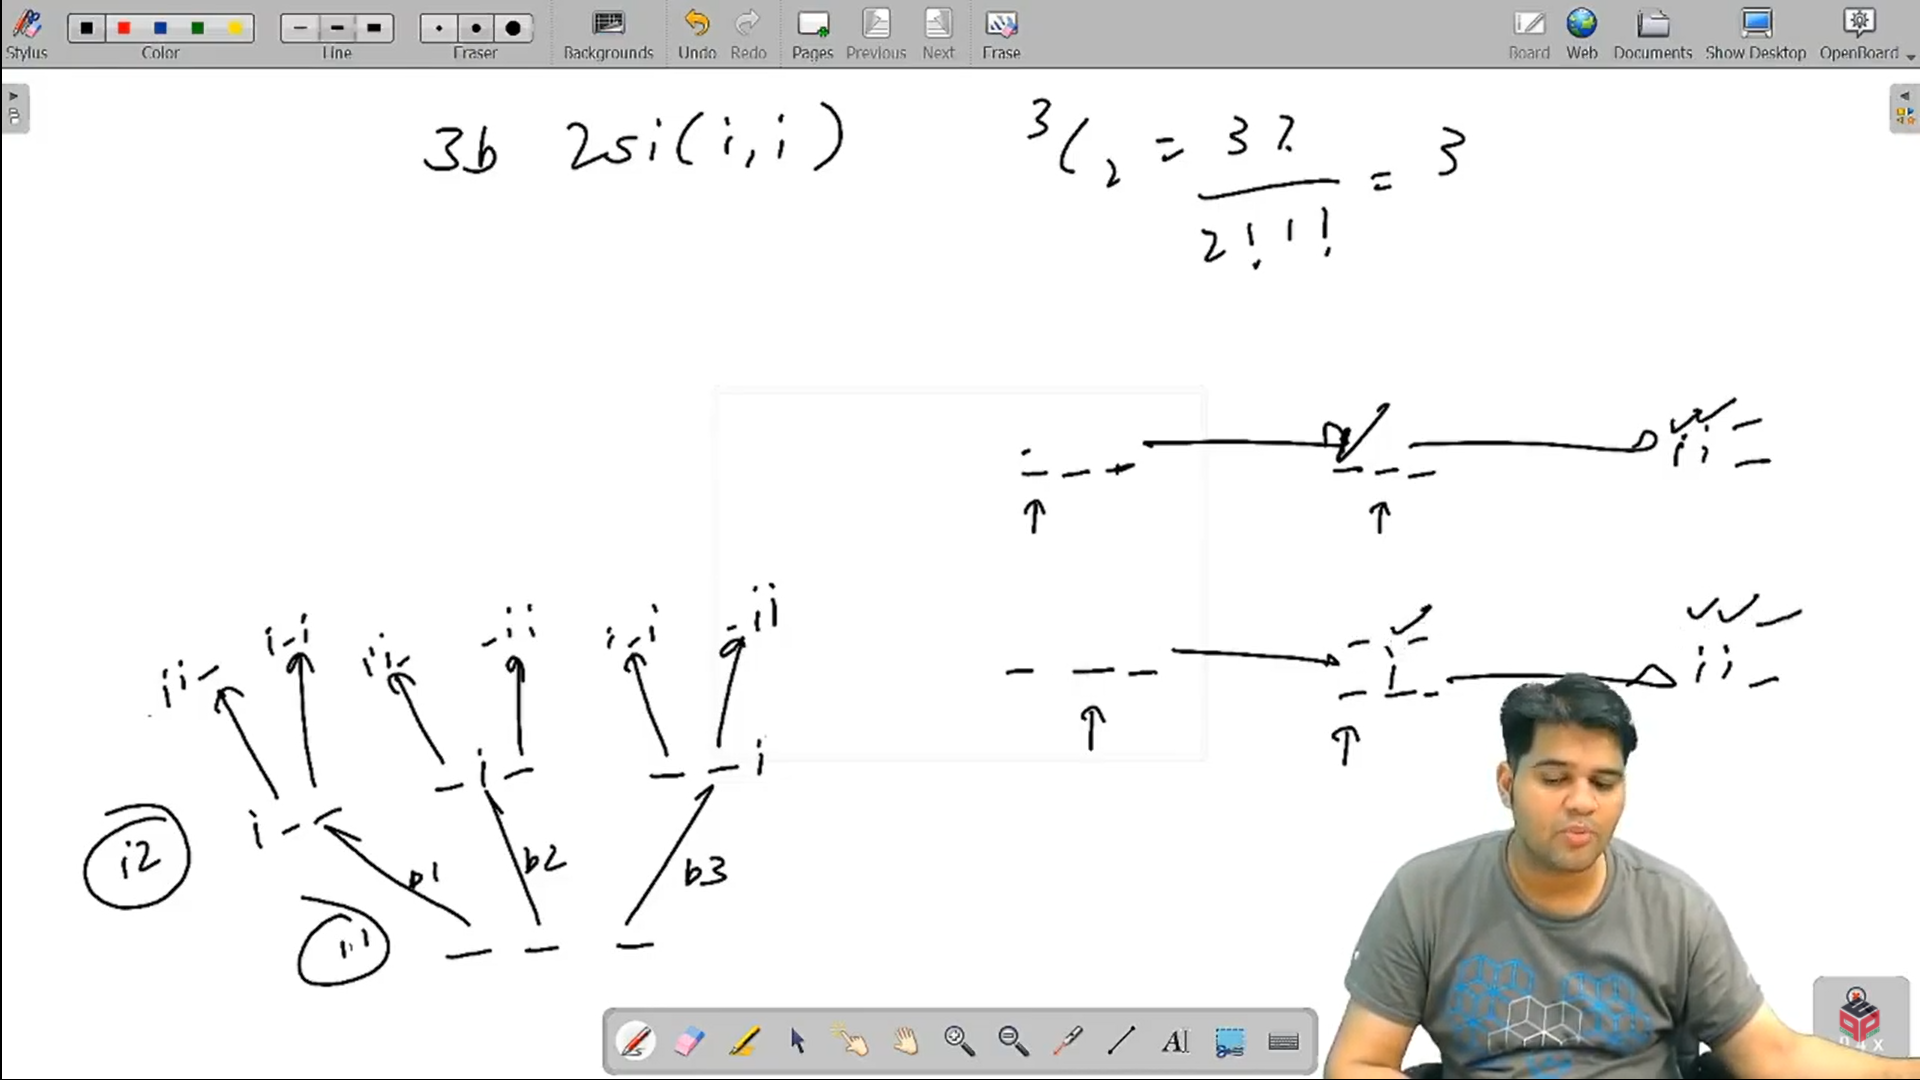 Stylus Color Line Eraser Backgrounds Undo Redo Pages Previous Next Erase Board Web Documents Show Desktop OpenBoard
3b 2si(i,i)
³C₂ = 3! / 2! 1! = 3
i i -
i i -
i i -
i - i
i i -
- i i
i - i
- i i
i - -
- i -
- - i
i2
b1
b2
b3
i1